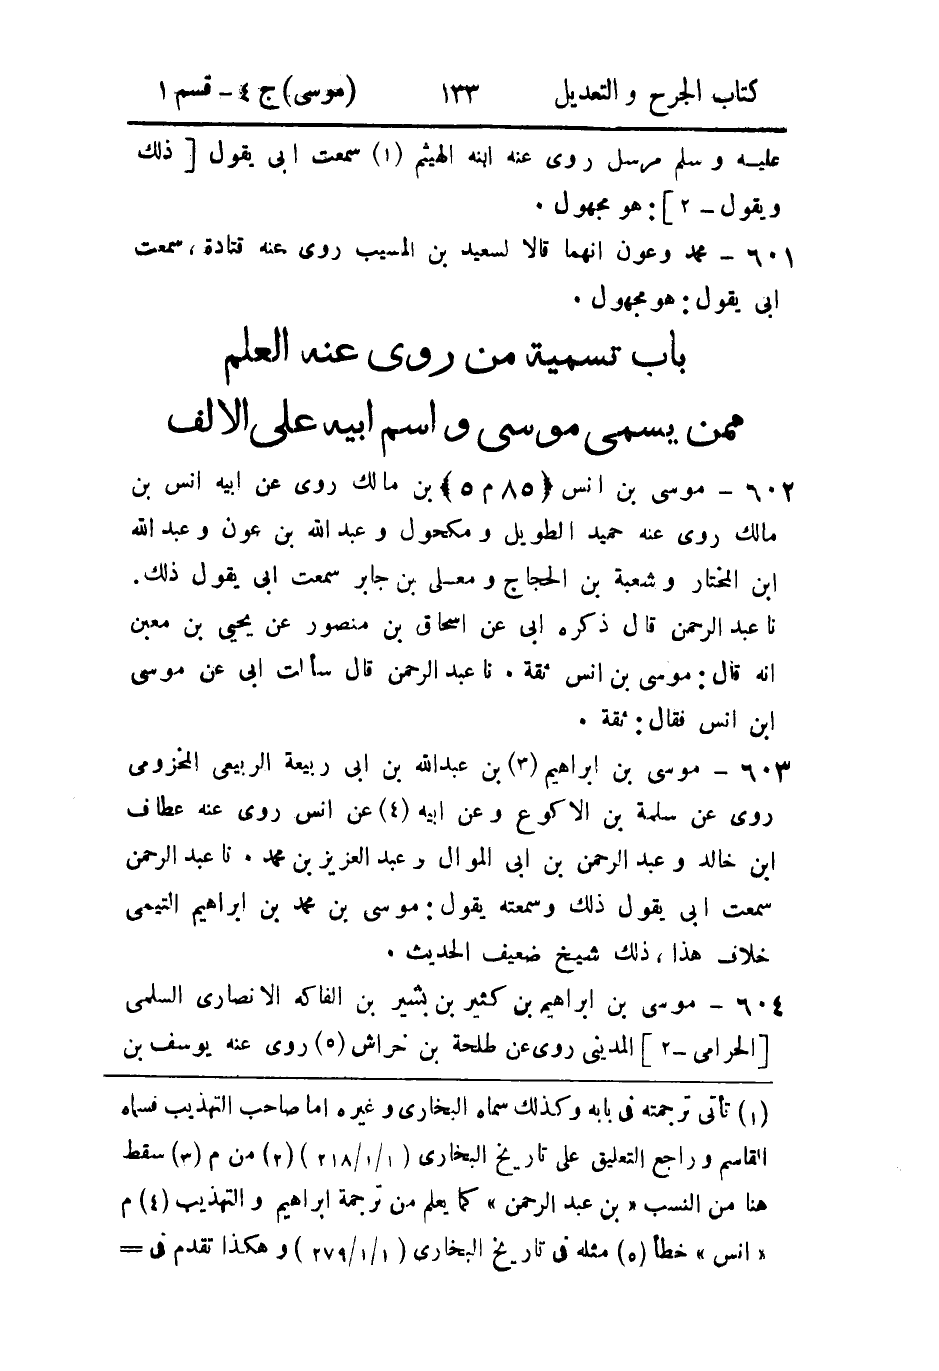 كتاب الجرح و التعديل ١٣٣ (موسى) ج ٤ - قسم ١
عليه و سلم مرسل روى عنه ابنه الهيثم (١) سمعت ابى يقول [ ذلك
ويقول - ٢ ] : هو مجهول .
٦٠١ - محمد وعون انهما قالا لسعيد بن المسيب روى عنه قتادة ، سمعت
ابى يقول : هو مجهول .
باب تسمية من روى عنه العلم
ممن يسمى موسى و اسم ابيه على الالف
٦٠٢ - موسى بن انس ﴿ ٨٥ م ٥ ﴾ بن مالك روى عن ابيه انس بن
مالك روى عنه حميد الطويل و مكحول و عبد الله بن عون و عبد الله
ابن المختار و شعبة بن الحجاج و معلى بن جابر سمعت ابى يقول ذلك .
نا عبد الرحمن قال ذكره ابى عن اسحاق بن منصور عن يحيى بن معين
انه قال : موسى بن انس ثقة . نا عبد الرحمن قال سألت ابى عن موسى
ابن انس فقال : ثقة .
٦٠٣ - موسى بن ابراهيم (٣) بن عبدالله بن ابى ربيعة الربيعى المخزومى
روى عن سلمة بن الاكوع و عن ابيه (٤) عن انس روى عنه عطاف
ابن خالد و عبد الرحمن بن ابى الموال و عبد العزيز بن محمد . نا عبد الرحمن
سمعت ابى يقول ذلك وسمعته يقول : موسى بن محمد بن ابراهيم التيمى
خلاف هذا ، ذلك شيخ ضعيف الحديث .
٦٠٤ - موسى بن ابراهيم بن كثير بن بشير بن الفاكه الانصارى السلمى
[ الحرامى - ٢ ] المدينى روى عن طلحة بن خراش (٥) روى عنه يوسف بن
(١) تأتى ترجمته فى بابه وكذلك سماه البخارى و غيره اما صاحب التهذيب فسماه
القاسم و راجع التعليق على تاريخ البخارى ( ٢١٨/١/١ ) (٢) من م (٣) سقط
هنا من النسب « بن عبد الرحمن » كما يعلم من ترجمة ابراهيم و التهذيب (٤) م
« انس » خطأ (٥) مثله فى تاريخ البخارى ( ٢٧٩/١/١ ) و هكذا تقدم فى =